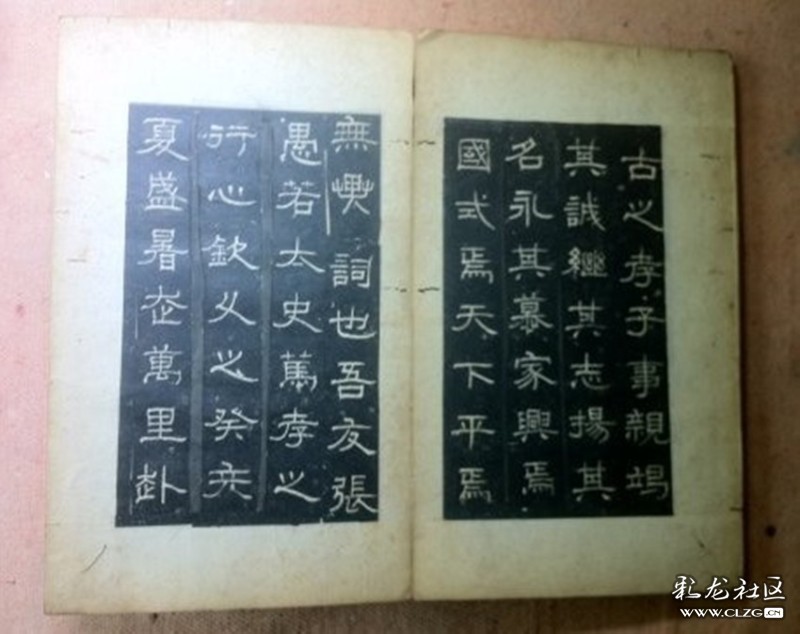 古之孝子事親竭
其誠繼其志揚其
名永其慕家興焉
國式焉天下平焉
無愧詞也吾友張
愚若太史篤孝之
行心欽久之癸亥
夏盛暑走萬里赴
彩龙社区
www.CLZG.cn